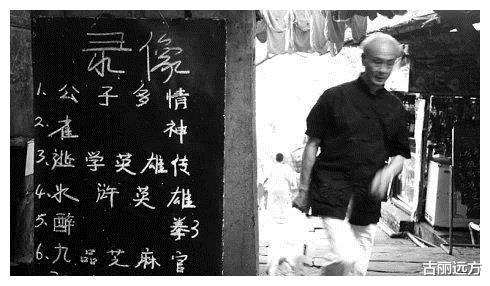 录像
1. 公子多情
2. 雀神
3. 逃学英雄传
4. 水浒英雄
5. 醉拳3
6. 九品芝麻官
古丽远方